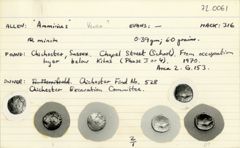 72.0061
ALLEN: "Amminius" "Verica" EVANS: — MACK: 316
AR minute 0.39gm; 6.0 grains.
FOUND: Chichester, Sussex. Chapel Street (School). From occupation
layer below Kilns (Phase 3 or 4). 1970.
Area 2. G.153.
OWNER: Chichester Find No. 528
Chichester Excavation Committee.
2/1